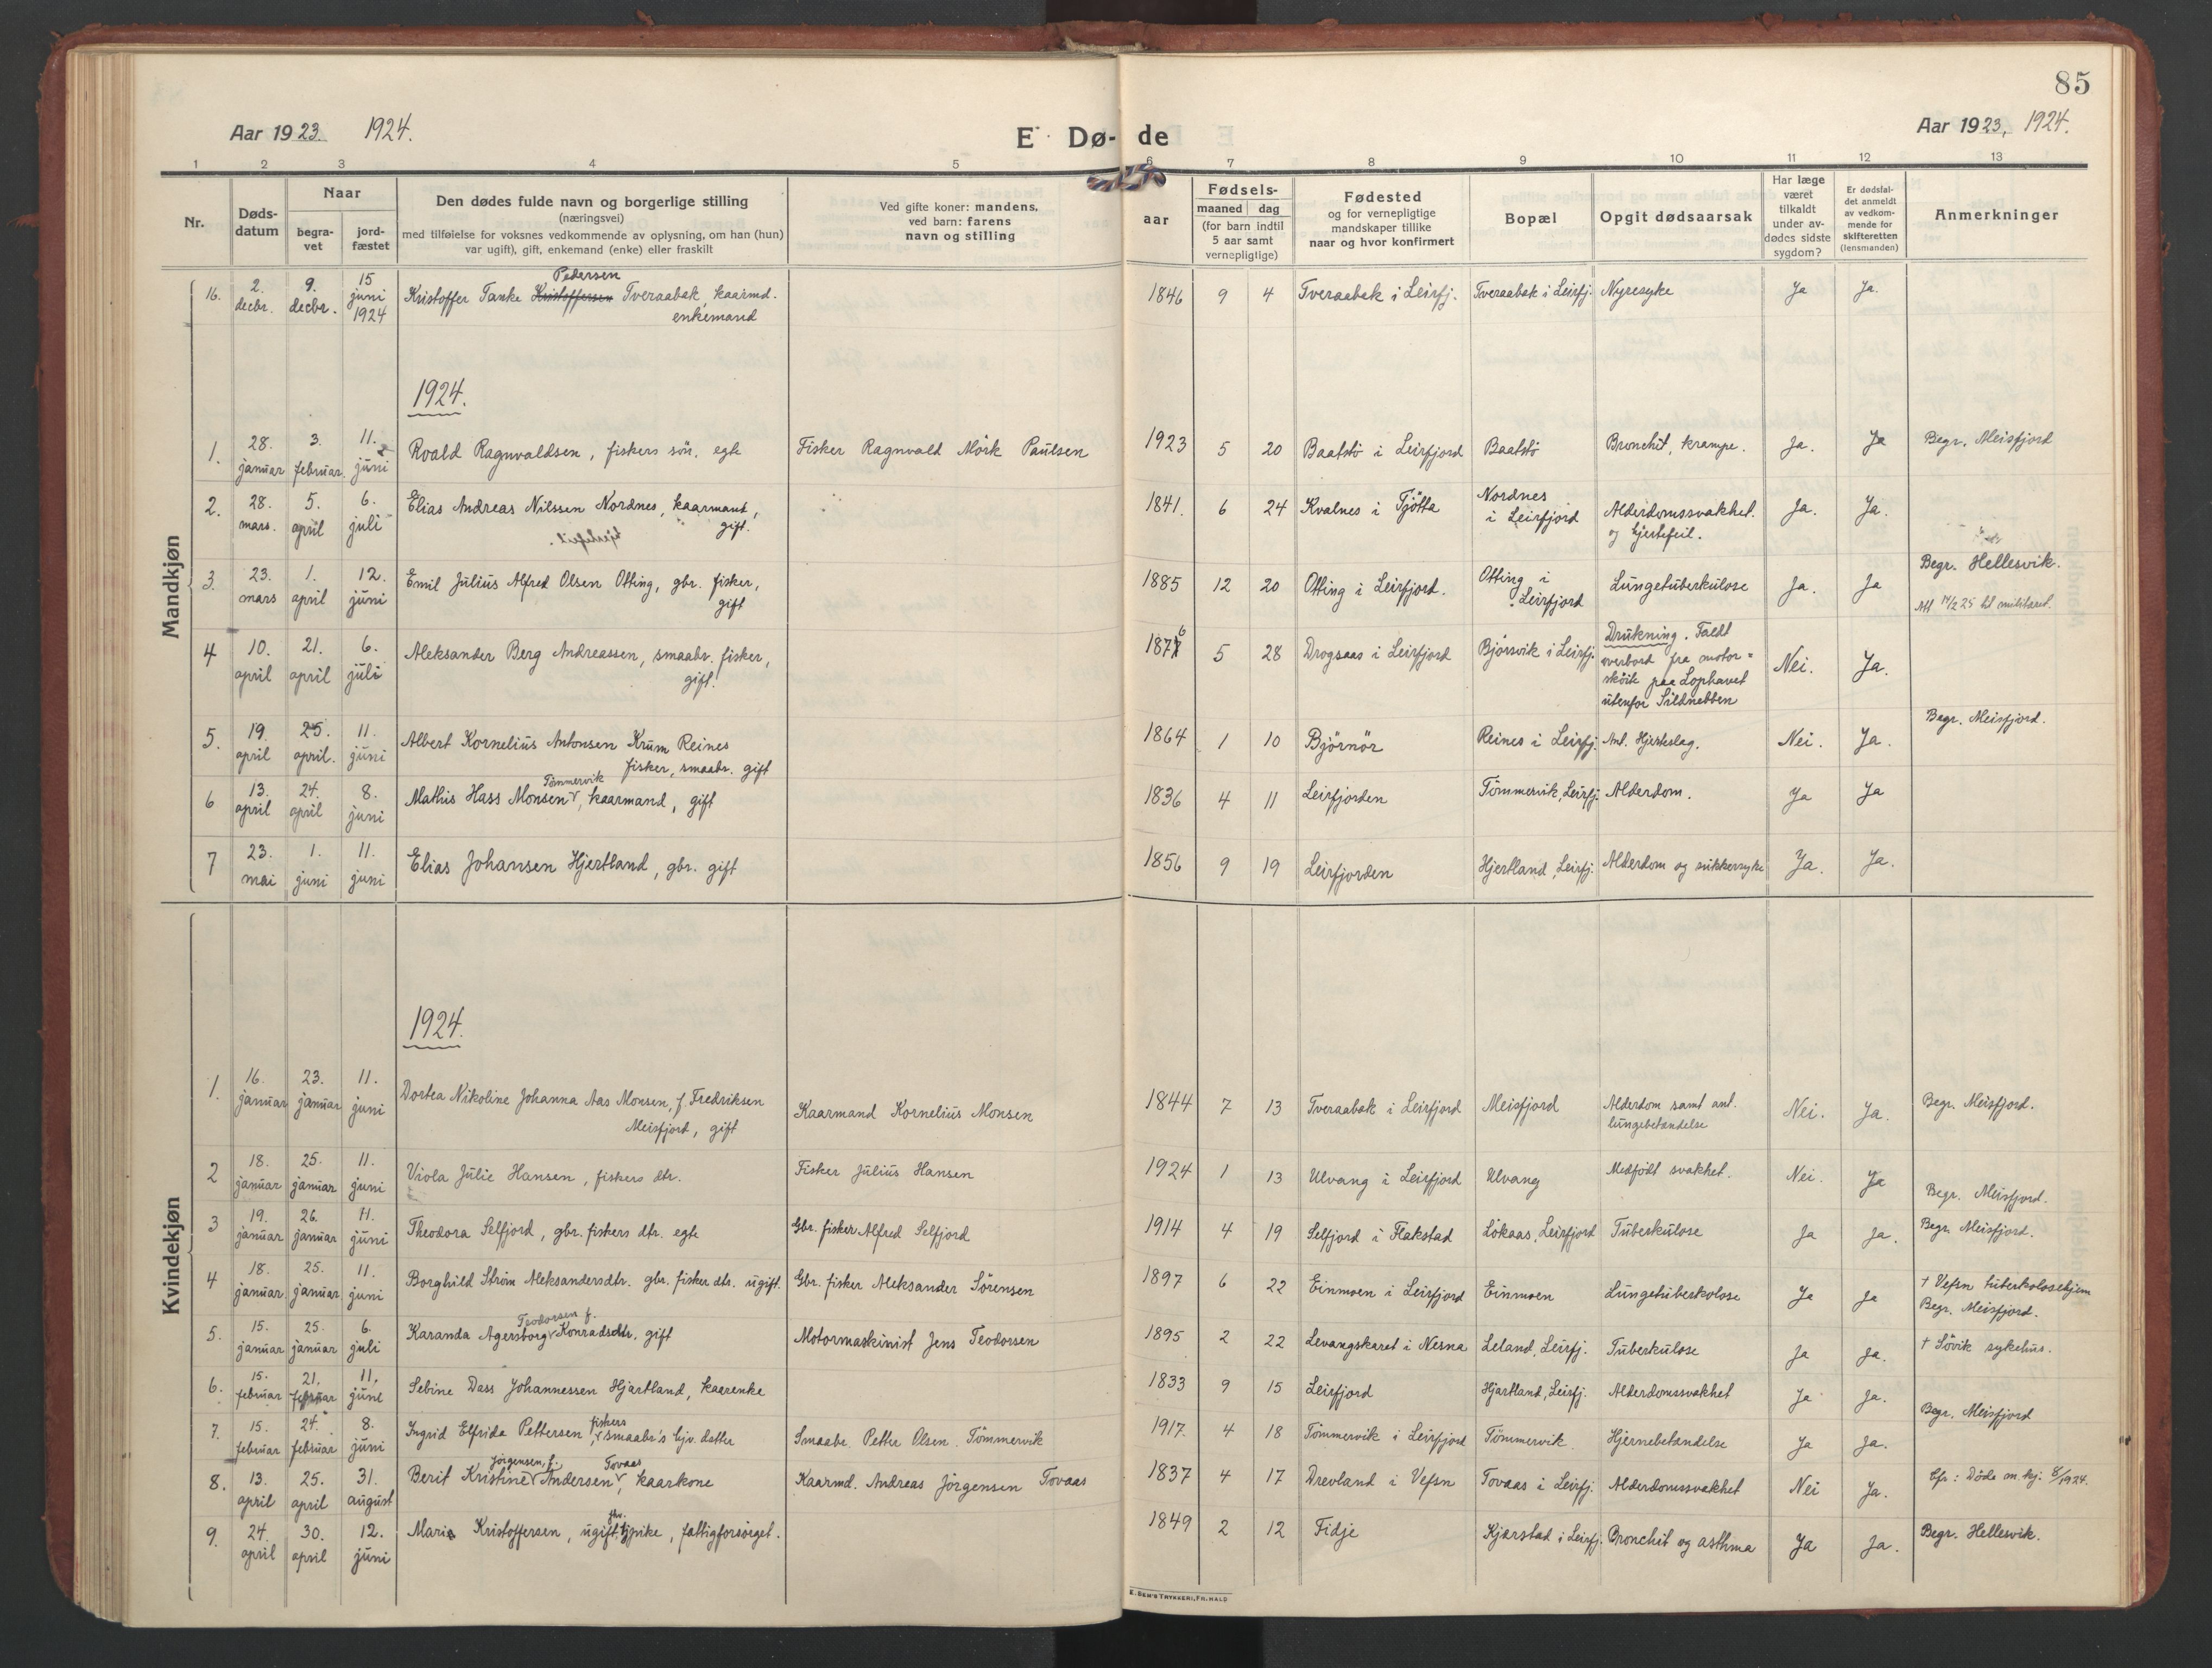 85
Aar 1923. 1924.
E. Dø- de
Aar 1923, 1924.
1 2 3 4 5 6 7 8 9 10 11 12 13
Nr.
Døds-
datum
Naar
begra-
vet
jord-
fæstet
Den dødes fulde navn og borgerlige stilling
(næringsvei)
med tilføielse for voksnes vedkommende av oplysning, om han (hun)
var ugift), gift, enkemand (enke) eller fraskilt
Ved gifte koner: mandens,
ved barn: farens
navn og stilling
aar
Fødsels-
maaned dag
(for barn indtil
5 aar samt
vernepligtige)
Fødested
og for vernepligtige
mandskaper tillike
naar og hvor konfirmert
Bopæl
Opgit dødsaarsak
Har læge
været
tilkaldt
under av-
dødes sidste
sygdom?
Er dødsfal-
det anmeldt
av vedkom-
mende for
skifteretten
(lensmanden)
Anmerkninger
Mandkjøn
16. 2. decbr. 9. decbr. 15 juni 1924 Kristoffer Tanke Kristoffersen Pedersen Tveraabak, kaarmd. enkemand 1846 9 4 Tveraabak i Leirfj. Tveraabak i Leirfj. Nyresyke Ja Ja.
1924.
1. 28. januar 3. februar. 11. juni Roald Ragnvaldsen, fiskers sön, egte Fisker Ragnvald Mörk Paulsen 1923 5 20 Baatstö i Leirfjord Baatstö Bronchit, krampe. Ja. Ja Begr. Meisfjord
2. 28. mars. 5. april 6. juli Elias Andreas Nilssen Nordnes, kaarmand, gift. 1841. 6 24 Kvalnes i Tjötta Nordnes i Leirfjord Alderdomssvakhet. og hjertefeil. Ja. Ja.
3. 23. mars 1. april 12. juni Emil Julius Alfred Olsen Otting, gbr. fisker, gift 1885 12 20 Otting i Leirfjord. Otting i Leirfjord Lungetuberkulose Ja. Ja Begr. Hellesvik. Att 14/2 25 til militæret.
4 10. april 21. april 6. juli Aleksander Berg Andreassen, smaabr. fisker, gift. 1877 6 5 28 Drogsaas i Leirfjord Björsvik i Leirfj. Drukning. Faldt overbord fra motor= sköite paa Lophavet utenfor Sildnebben Nei. Ja.
5. 19. april 25. april. 11. juni Albert Kornelius Antonsen Krum Reines fisker, smaabr. gift 1864 1 10 Björnör Reines i Leirfj. Ant. Hjerteslag. Nei. Ja. Begr. Meisfjord.
6 13. april 24. april 8. juni Mathis Hass Monsen Tömmervik, kaarmand, gift 1836 4 11 Leirfjorden Tömmervik, Leirfj. Alderdom. Ja Ja
7 23. mai 1. juni 11. juni Elias Johansen Hjertland, gbr. gift 1856 9 19 Leirfjorden Hjertland, Leirfj. Alderdom og sukkersyke Ja. Ja.
Kvindekjøn
1924.
1. 16. januar 23. januar 11. juni Dortea Nikoline Johanna Aas Monsen, f. Fredriksen Meisfjord, gift Kaarmand Kornelius Monsen 1844 7 13 Tveraabak i Leirfjord Meisfjord Alderdom samt ant. lungebetændelse Nei. Ja. Begr. Meisfjord.
2 18. januar 25. januar 11. juni Viola Julie Hansen, fiskers dtr. Fisker Julius Hansen 1924 1 13 Ulvang i Leirfjord Ulvang Medfödt svakhet. Nei. Ja Begr. Meisfjord.
3 19. januar 26. januar 11. juni Theodora Selfjord, gbr. fiskers dtr. egte Gbr. fisker Alfred Selfjord 1914 4 19 Selfjord i Flakstad Lökaas, Leirfjord Tuberkulose Ja Ja. Begr. Meisfjord.
4 18. januar 25. januar 11. juni Borghild Ström Aleksandersdtr. gbr. fisker dtr. ugift. Gbr. fisker Aleksander Sörensen 1897 6 22 Einmoen i Leirfjord Einmoen Lungetuberkolose Ja Ja † Vefsn tuberkolosehjem Begr. Meisfjord.
5. 15. januar 25. januar 6. juli Karanda Agersborg Teodorsen f. Konradsdtr, gift Motormaskinist Jens Teodorsen 1895 2 22 Levangskaret i Nesna Leland, Leirfj. Tuberkulose Ja Ja. † Sövik sykehus.
6. 15. februar 21. februar 11. juni Sebine Dass Johannessen Hjartland, kaarenke 1833 9 15 Leirfjord Hjartland, Leirfj. Alderdomssvakhet Ja Ja.
7. 15. februar 24. februar 8. juni Ingrid Elfrida Pettersen, fiskers smaabr's hjv. datter Smaabr. Petter Olsen Tömmervik 1917. 4 18 Tömmervik i Leirfjord Tömmervik. Hjernebetændelse Ja Ja. Begr. Meisfjord
8. 13. april 25. april 31. august Berit Kristine Jörgensen, f. Andersen Tovaas, kaarkone Kaarmd. Andreas Jörgensen Tovaas 1837 4 17 Drevland i Vefsn Tovaas i Leirfj. Alderdomssvakhet Nei Ja. Cfr: Döde m.kj. 8/1924.
9. 24. april 30. april 12. juni Marie Kristoffersen, ugift, pike, fattigforsörget. 1849 2 12 Fidje Kjærstad i Leirfj. Bronchit og asthma Ja Ja. Begr. Hellesvik.
E. SEM'S TRYKKERI, FR.HALD